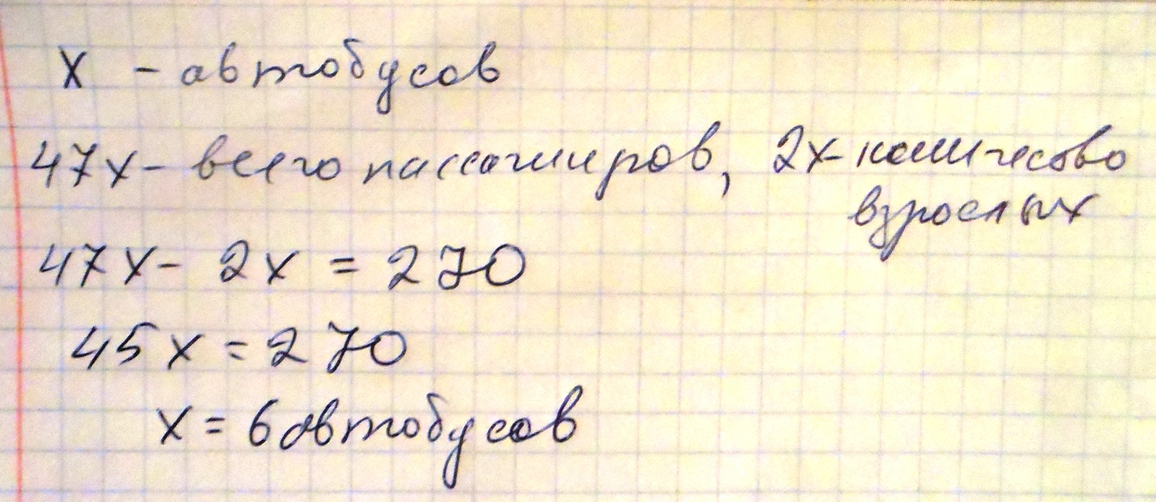 х - автобусов
47х - всего пассажиров, 2х - количесово
взрослых
47х - 2х = 270
45х = 270
х = 6 автобусов